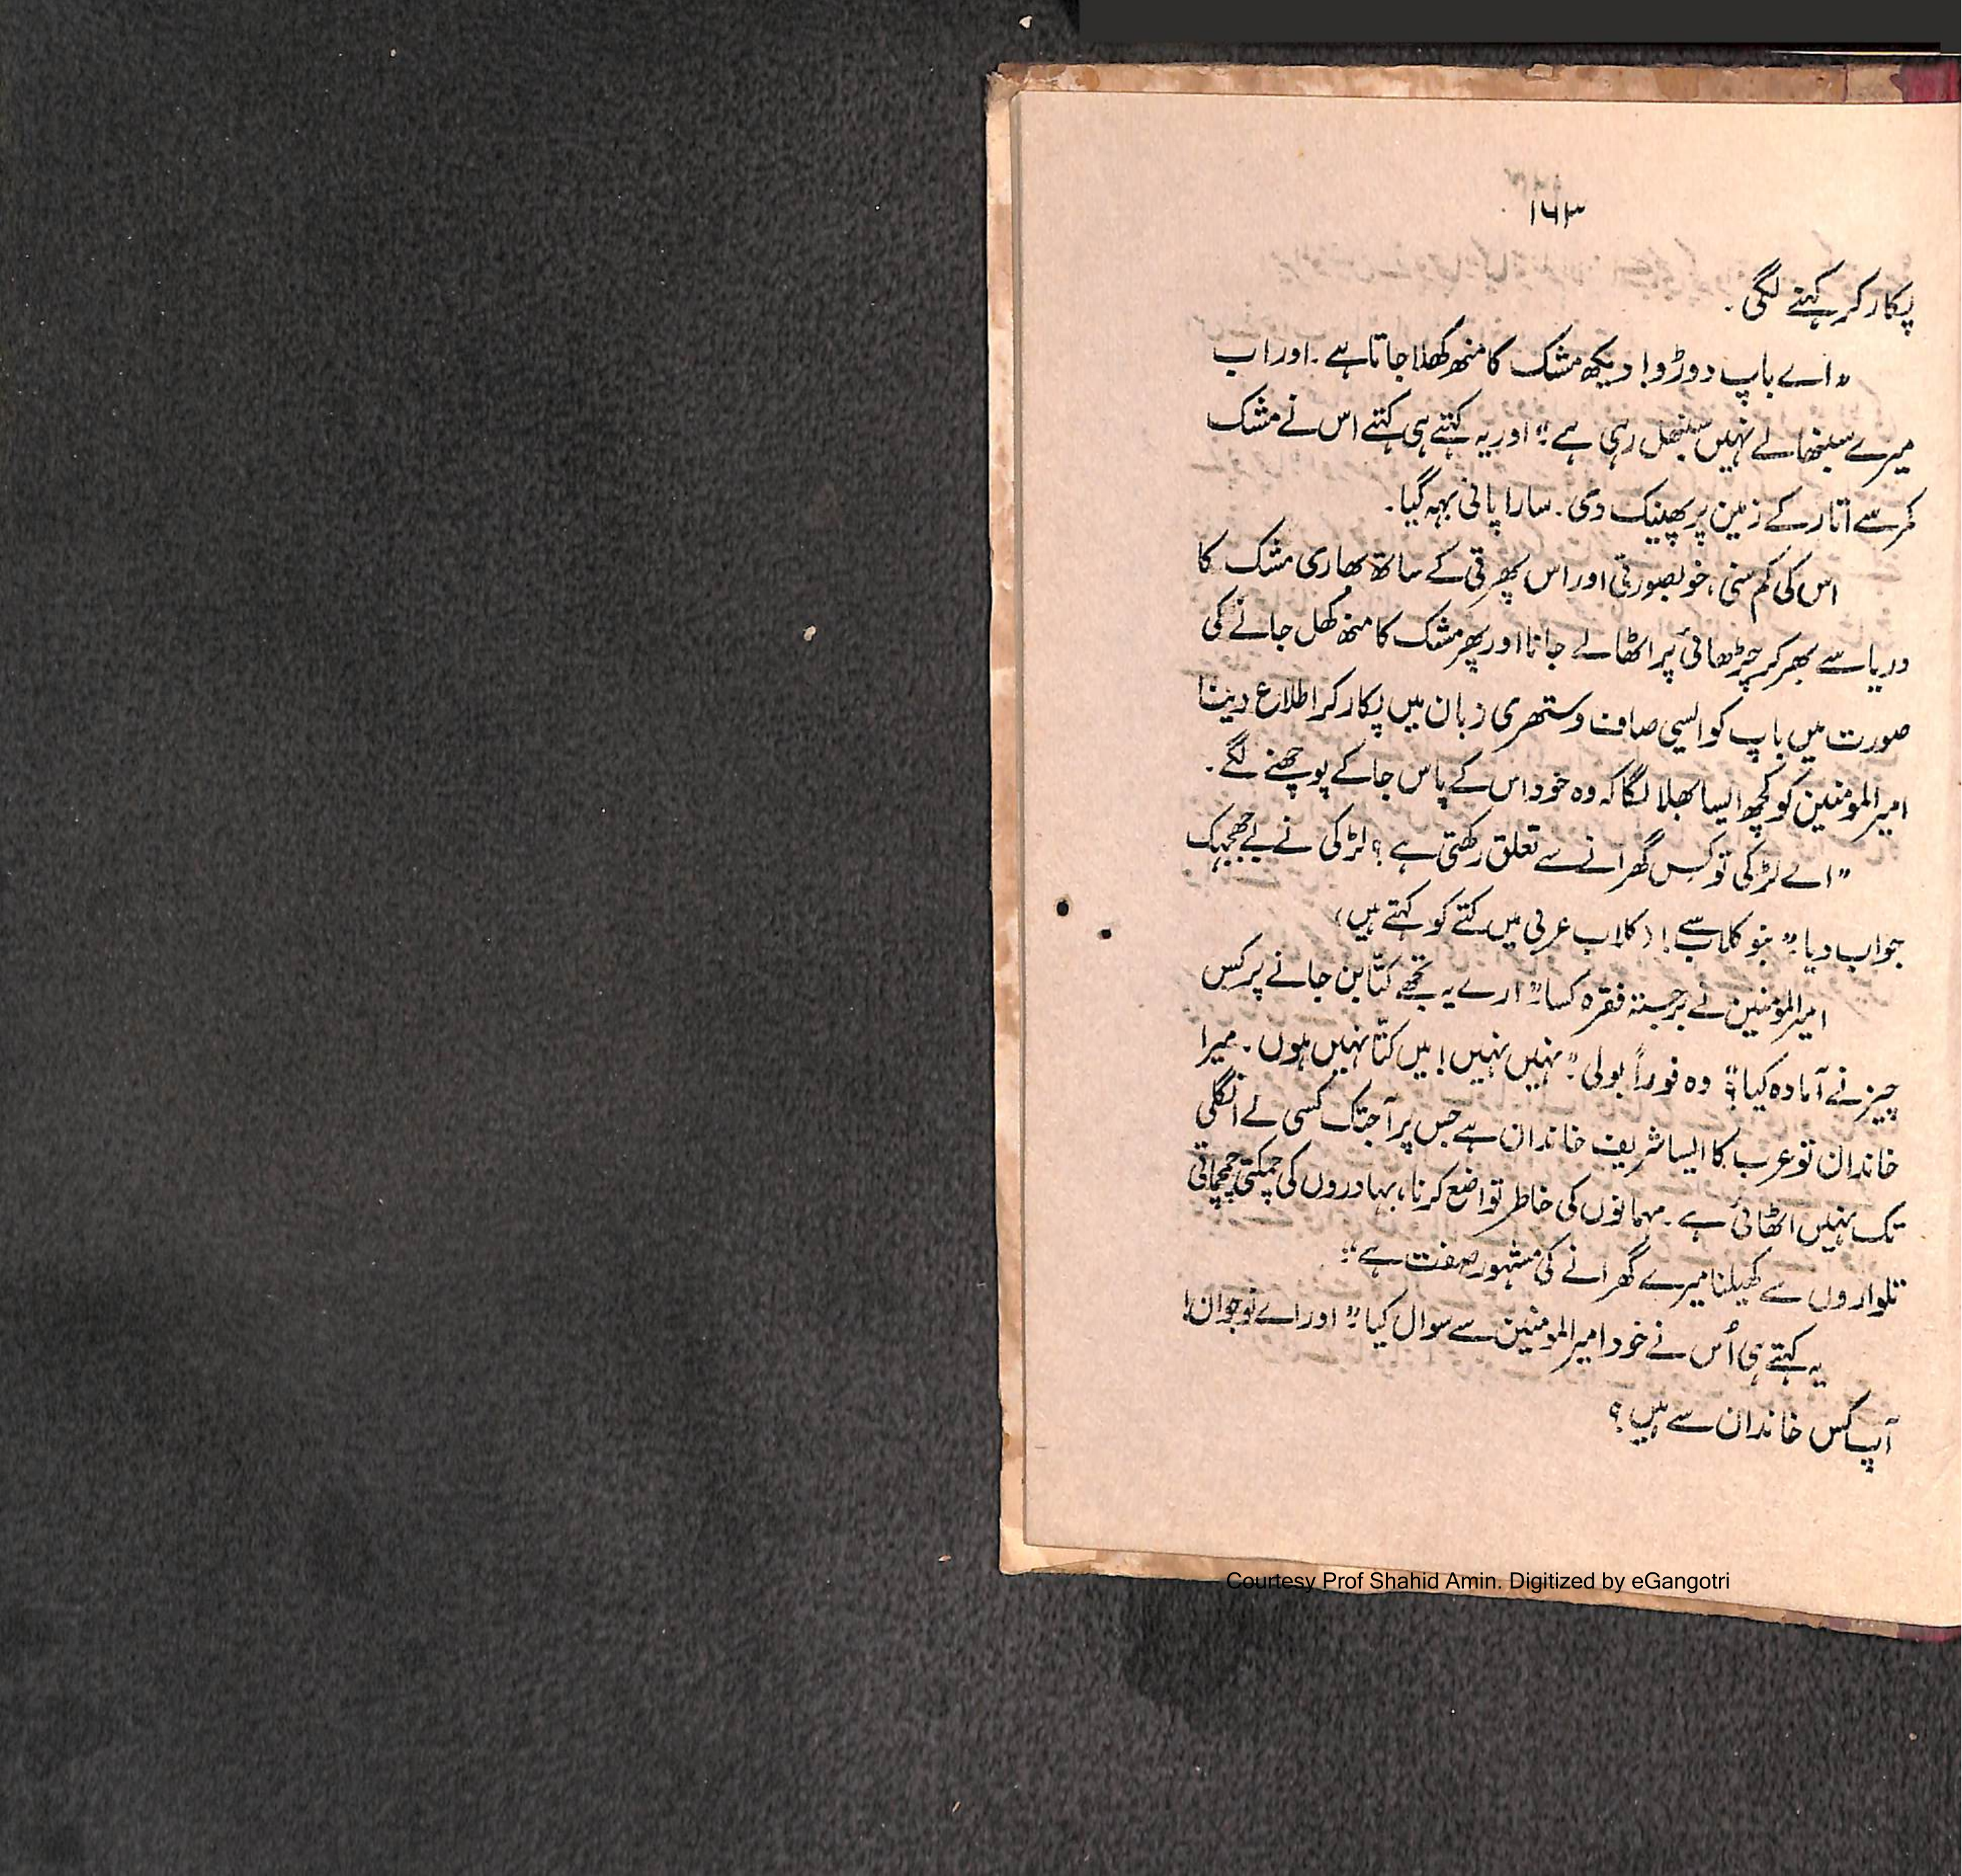 ۱۶۳
پکار کر کہنے لگی۔
"اے باپ دوڑو! دیکھ مشک کا منھ کھلا جاتا ہے۔ اور اب
میرے سنبھالے نہیں سنبھل رہی ہے" اور یہ کہتے ہی کہتے اس نے مشک
کمر سے اتار کے زمین پر پھینک دی۔ سارا پانی بہہ گیا۔
اس کی کم سنی، خوبصورتی اور اس پھرتی کے ساتھ بھاری مشک کا
دریا سے بھر کر چڑھائی پر اٹھا لے جانا اور پھر مشک کا منھ کھل جانے کی
صورت میں باپ کو ایسی صاف و ستھری زبان میں پکار کر اطلاع دینا
امیر المومنین کو کچھ ایسا بھلا لگا کہ وہ خود اس کے پاس جا کے پوچھنے لگے۔
"اے لڑکی تو کس گھرانے سے تعلق رکھتی ہے؟ لڑکی نے بے جھجک
جواب دیا" بنو کلاب سے! (کلاب عربی میں کتے کو کہتے ہیں)
امیر المومنین نے برجستہ فقرہ کسا" ارے یہ تجھے کتا بن جانے پر کس
چیز نے آمادہ کیا؟" وہ فوراً بولی" نہیں نہیں! میں کتا نہیں ہوں۔ میرا
خاندان تو عرب کا ایسا شریف خاندان ہے جس پر آجتک کسی نے انگلی
تک نہیں اٹھائی ہے۔ مہمانوں کی خاطر تواضع کرنا، بہادروں کی چمکتی چمچماتی
تلواروں سے کھیلنا میرے گھرانے کی مشہور صفت ہے"
یہ کہتے ہی اُس نے خود امیر المومنین سے سوال کیا" اور اے نوجوان!
آپ کس خاندان سے ہیں؟
Courtesy Prof Shahid Amin. Digitized by eGangotri